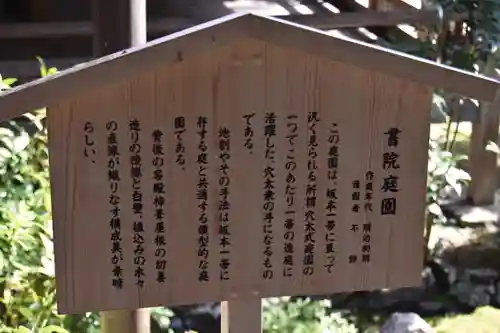 書院庭園
作庭年代 明治初期
造園者 不詳
この庭園は、坂本一帯に亘って
汎く見られる所謂穴太式庭園の
一つで、このあたり一帯の造庭に
活躍した、穴太衆の手になるもの
である。
地割やその手法は坂本一帯に
存する庭と共通する類型的な庭
園である。
背後の客殿 葺屋根の切妻
造りの と白壁、植込みの木々
の が織りなす構成美が素晴
らしい。